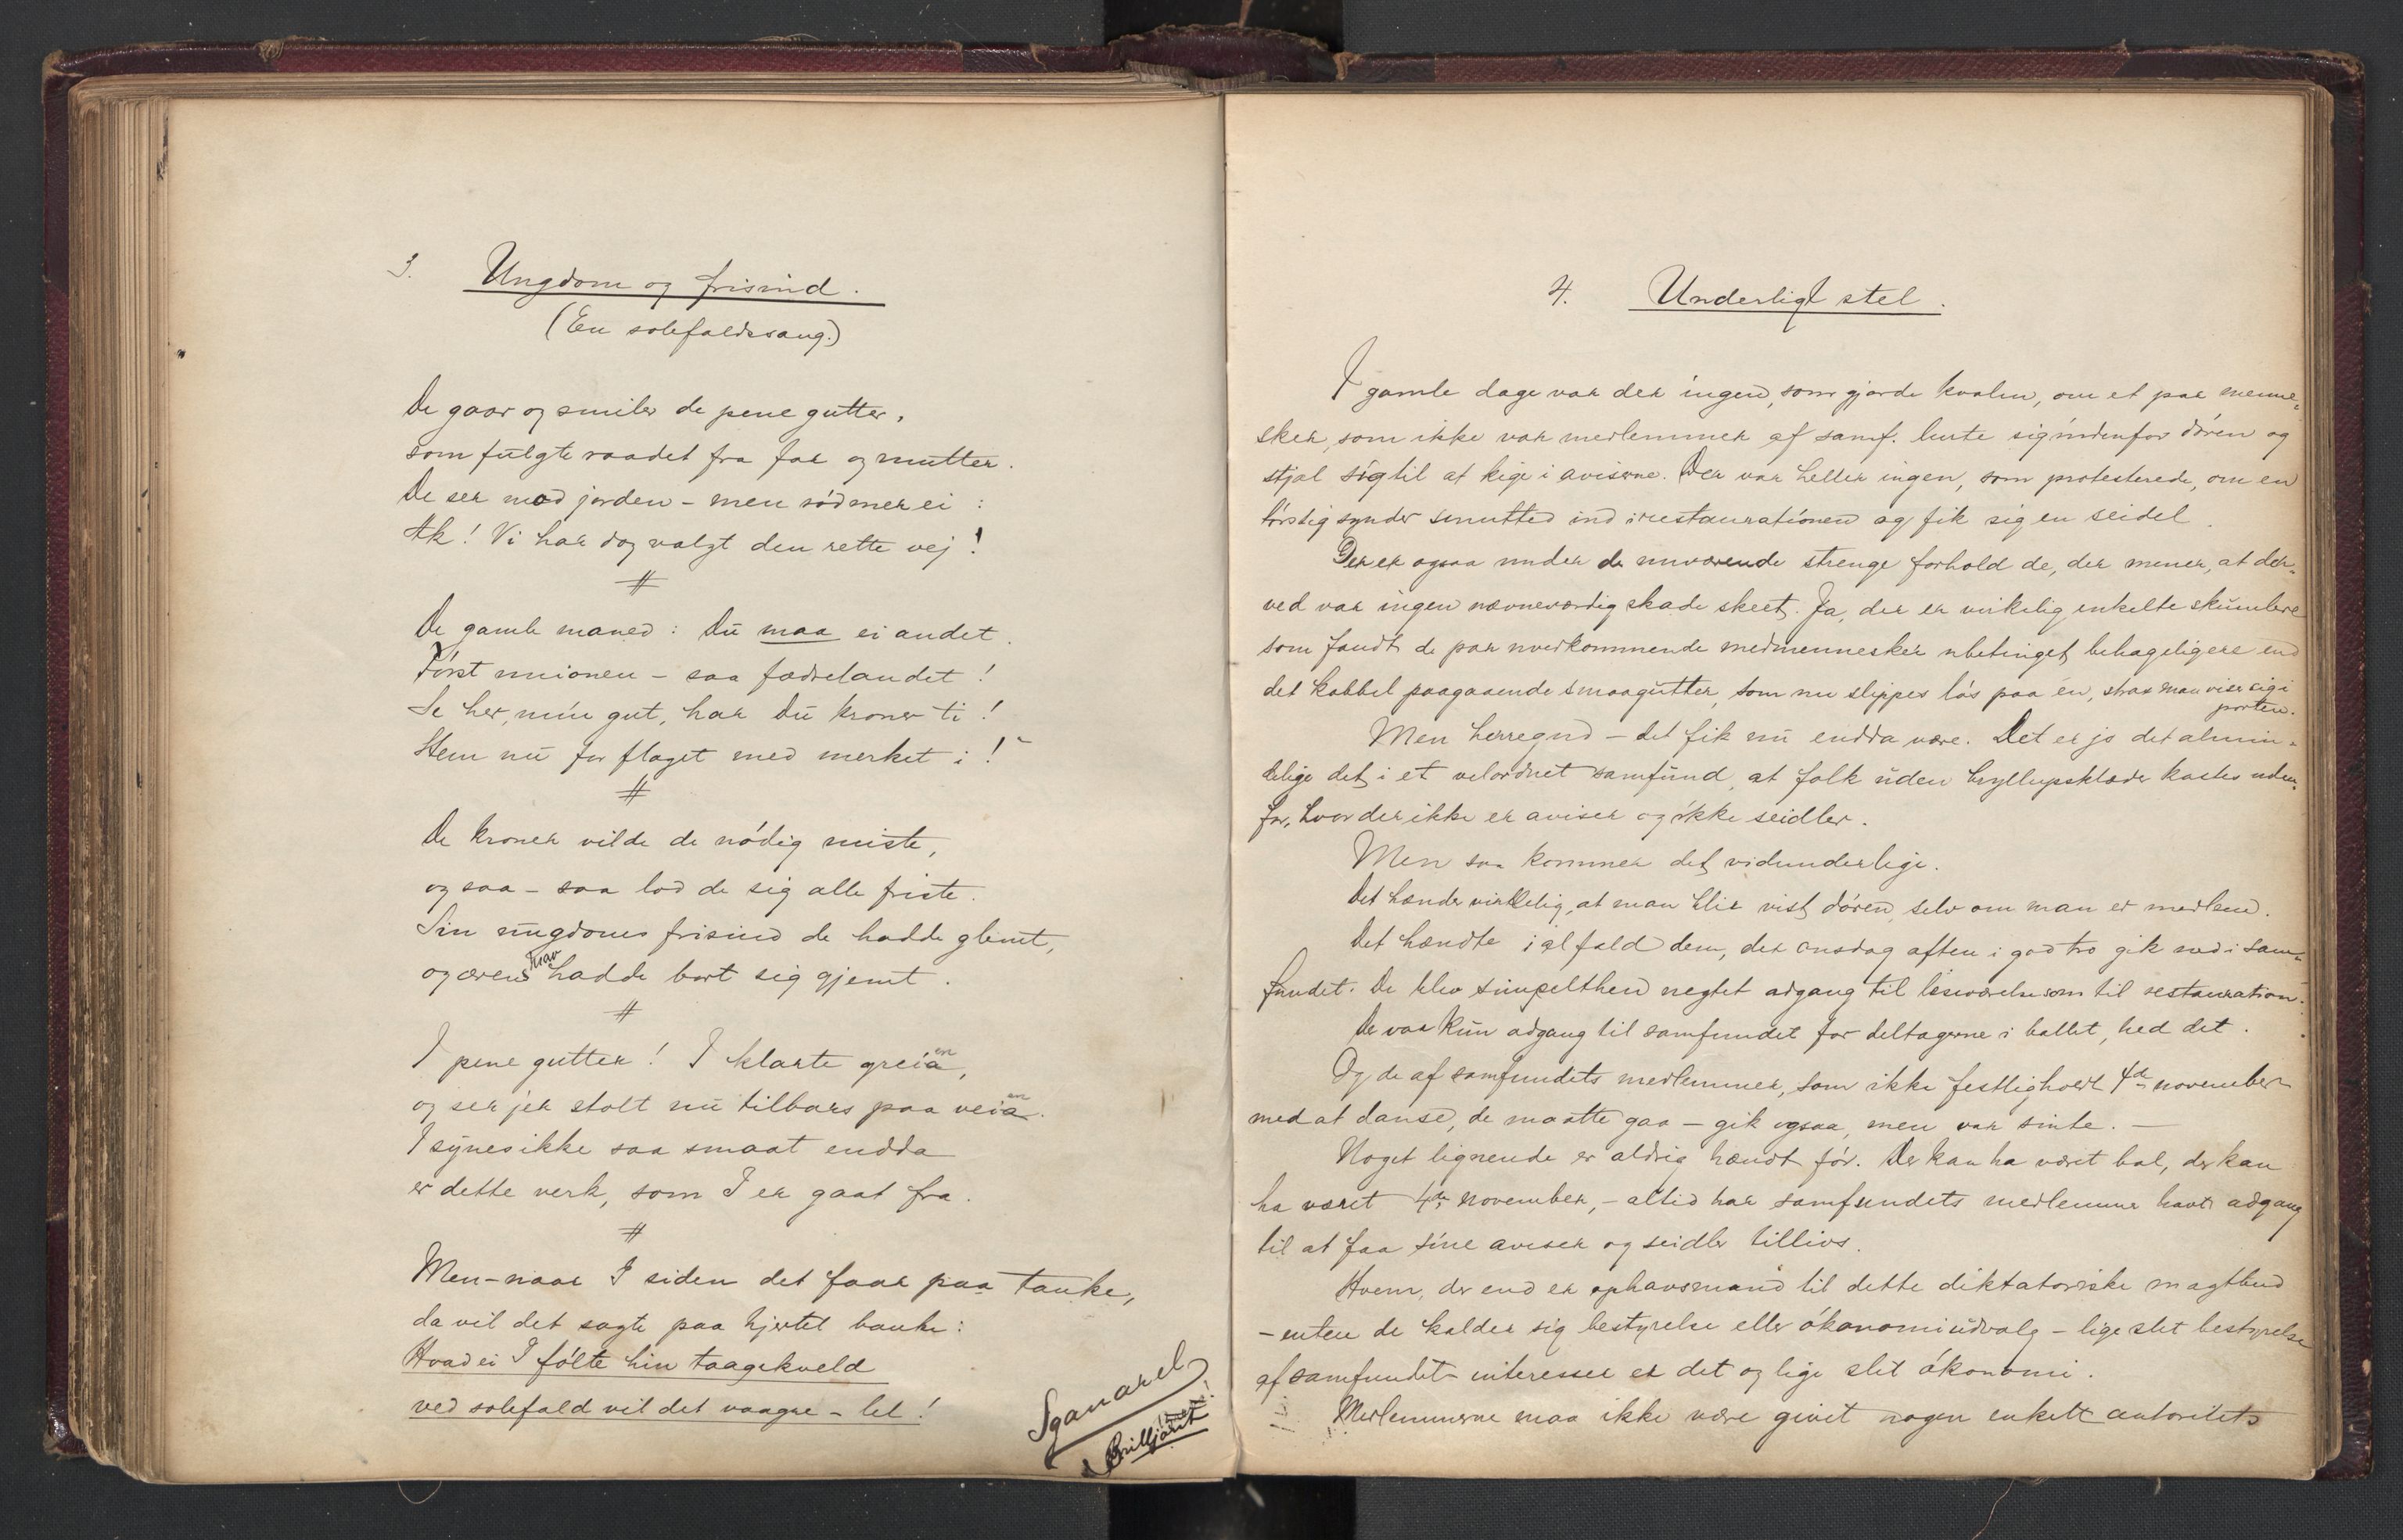 3. Ungdom og frisind.
(En solefaldssang.)
De gaar og smiler de pene gutter,
som fulgte raadet fra far og mutter.
De ser mod jorden – men rødmer ei :
Ak! Vi har dog valgt den rette vej!
#
De gamle maned : Du maa ei andet.
Først unionen – saa fædrelandet!
Se her, min gut, har Du kroner ti!
Stem nu for flaget med merket i!"
#
De kroner vilde de nødig miste,
og saa – saa lod de sig alle friste.
Sin ungdoms frisind de hadde glemt,
og ærens krav hadde bort sig gjemt.
#
I pene gutter! I klarte greiaen,
og ser jer stolt nu tilbars paa veiaen.
I synes ikke saa smaat endda
er dette verk, som I er gaat fra.
#
Men – naar I siden det faar paa tanke,
da vil det sagte paa hjertet banke:
Hvad ei I følte hin taagekveld
ved solefald vil det vaagne – lel!
Sganarel
Brilljant!
4. Underligt stel.
I gamle dage var der ingen, som gjorde kvalm, om et par menne-
sker, som ikke var medlemmer af samf. luste sig indenfor døren og
stjal sig til at kige i aviserne. Der var heller ingen, som protesterede, om en
tørstig synder smutted ind i restaurationen og fik sig en seidel.
Der er ogsaa under de nuværende strenge forhold de, der mener, at der-
ved var ingen nævneværdig skade skeet. Ja, der er virkelig enkelte skumlere
som fandt de par uvedkommende medmennesker ubetinget behageligere end
det kobbel paagaaende smaagutter, som nu slippes løs paa en, strax man viser sig i
porten.
Men herregud – det fik nu endda være. Det er jo det almin-
delige det, i et velordnet samfund, at folk uden bryllupsklæder kastes uden-
for, hvor der ikke er aviser og ikke seidler.
Men saa kommer det vidunderlige.
Det hænder virkelig, at man blir vist døren, selv om man er medlem.
Det hændte ialfald dem, der onsdag aften i god tro gik ned i Sam-
fundet. De blev simpelthen negtet adgang til læseværelse som til restauration.
Der var kun adgang til samfundet for deltagerne i ballet, hed det.
Og de af samfundets medlemmer, som ikke festligholdt 4de november
med at danse, de maatte gaa – gik ogsaa, men var sinte. —
Noget lignende er aldrig hændt før. Der kan ha været bal, der kan
ha været 4de november, – altid har samfundets medlemmer havt adgang
til at faa sine aviser og seidler tillivs.
Hvem, der end er ophavsmand til dette diktatoriske magtbud
– enten de kalder sig bestyrelse eller økonomiudvalg – lige slet bestyrelse
af samfundets interesser er det og lige slet økonomi.
Medlemmerne maa ikke være givet nogen enkelt autoritets